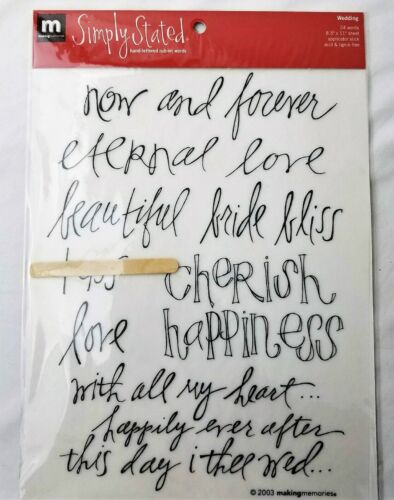 m
making memories
Simply Stated
hand-lettered rub-on words
Wedding
24 words
8.5" x 11" sheet
applicator stick
acid & lignin free
now and forever
eternal love
beautiful bride bliss
cherish
love happiness
with all my heart...
happily ever after
this day i thee wed...
© 2003 makingmemories®